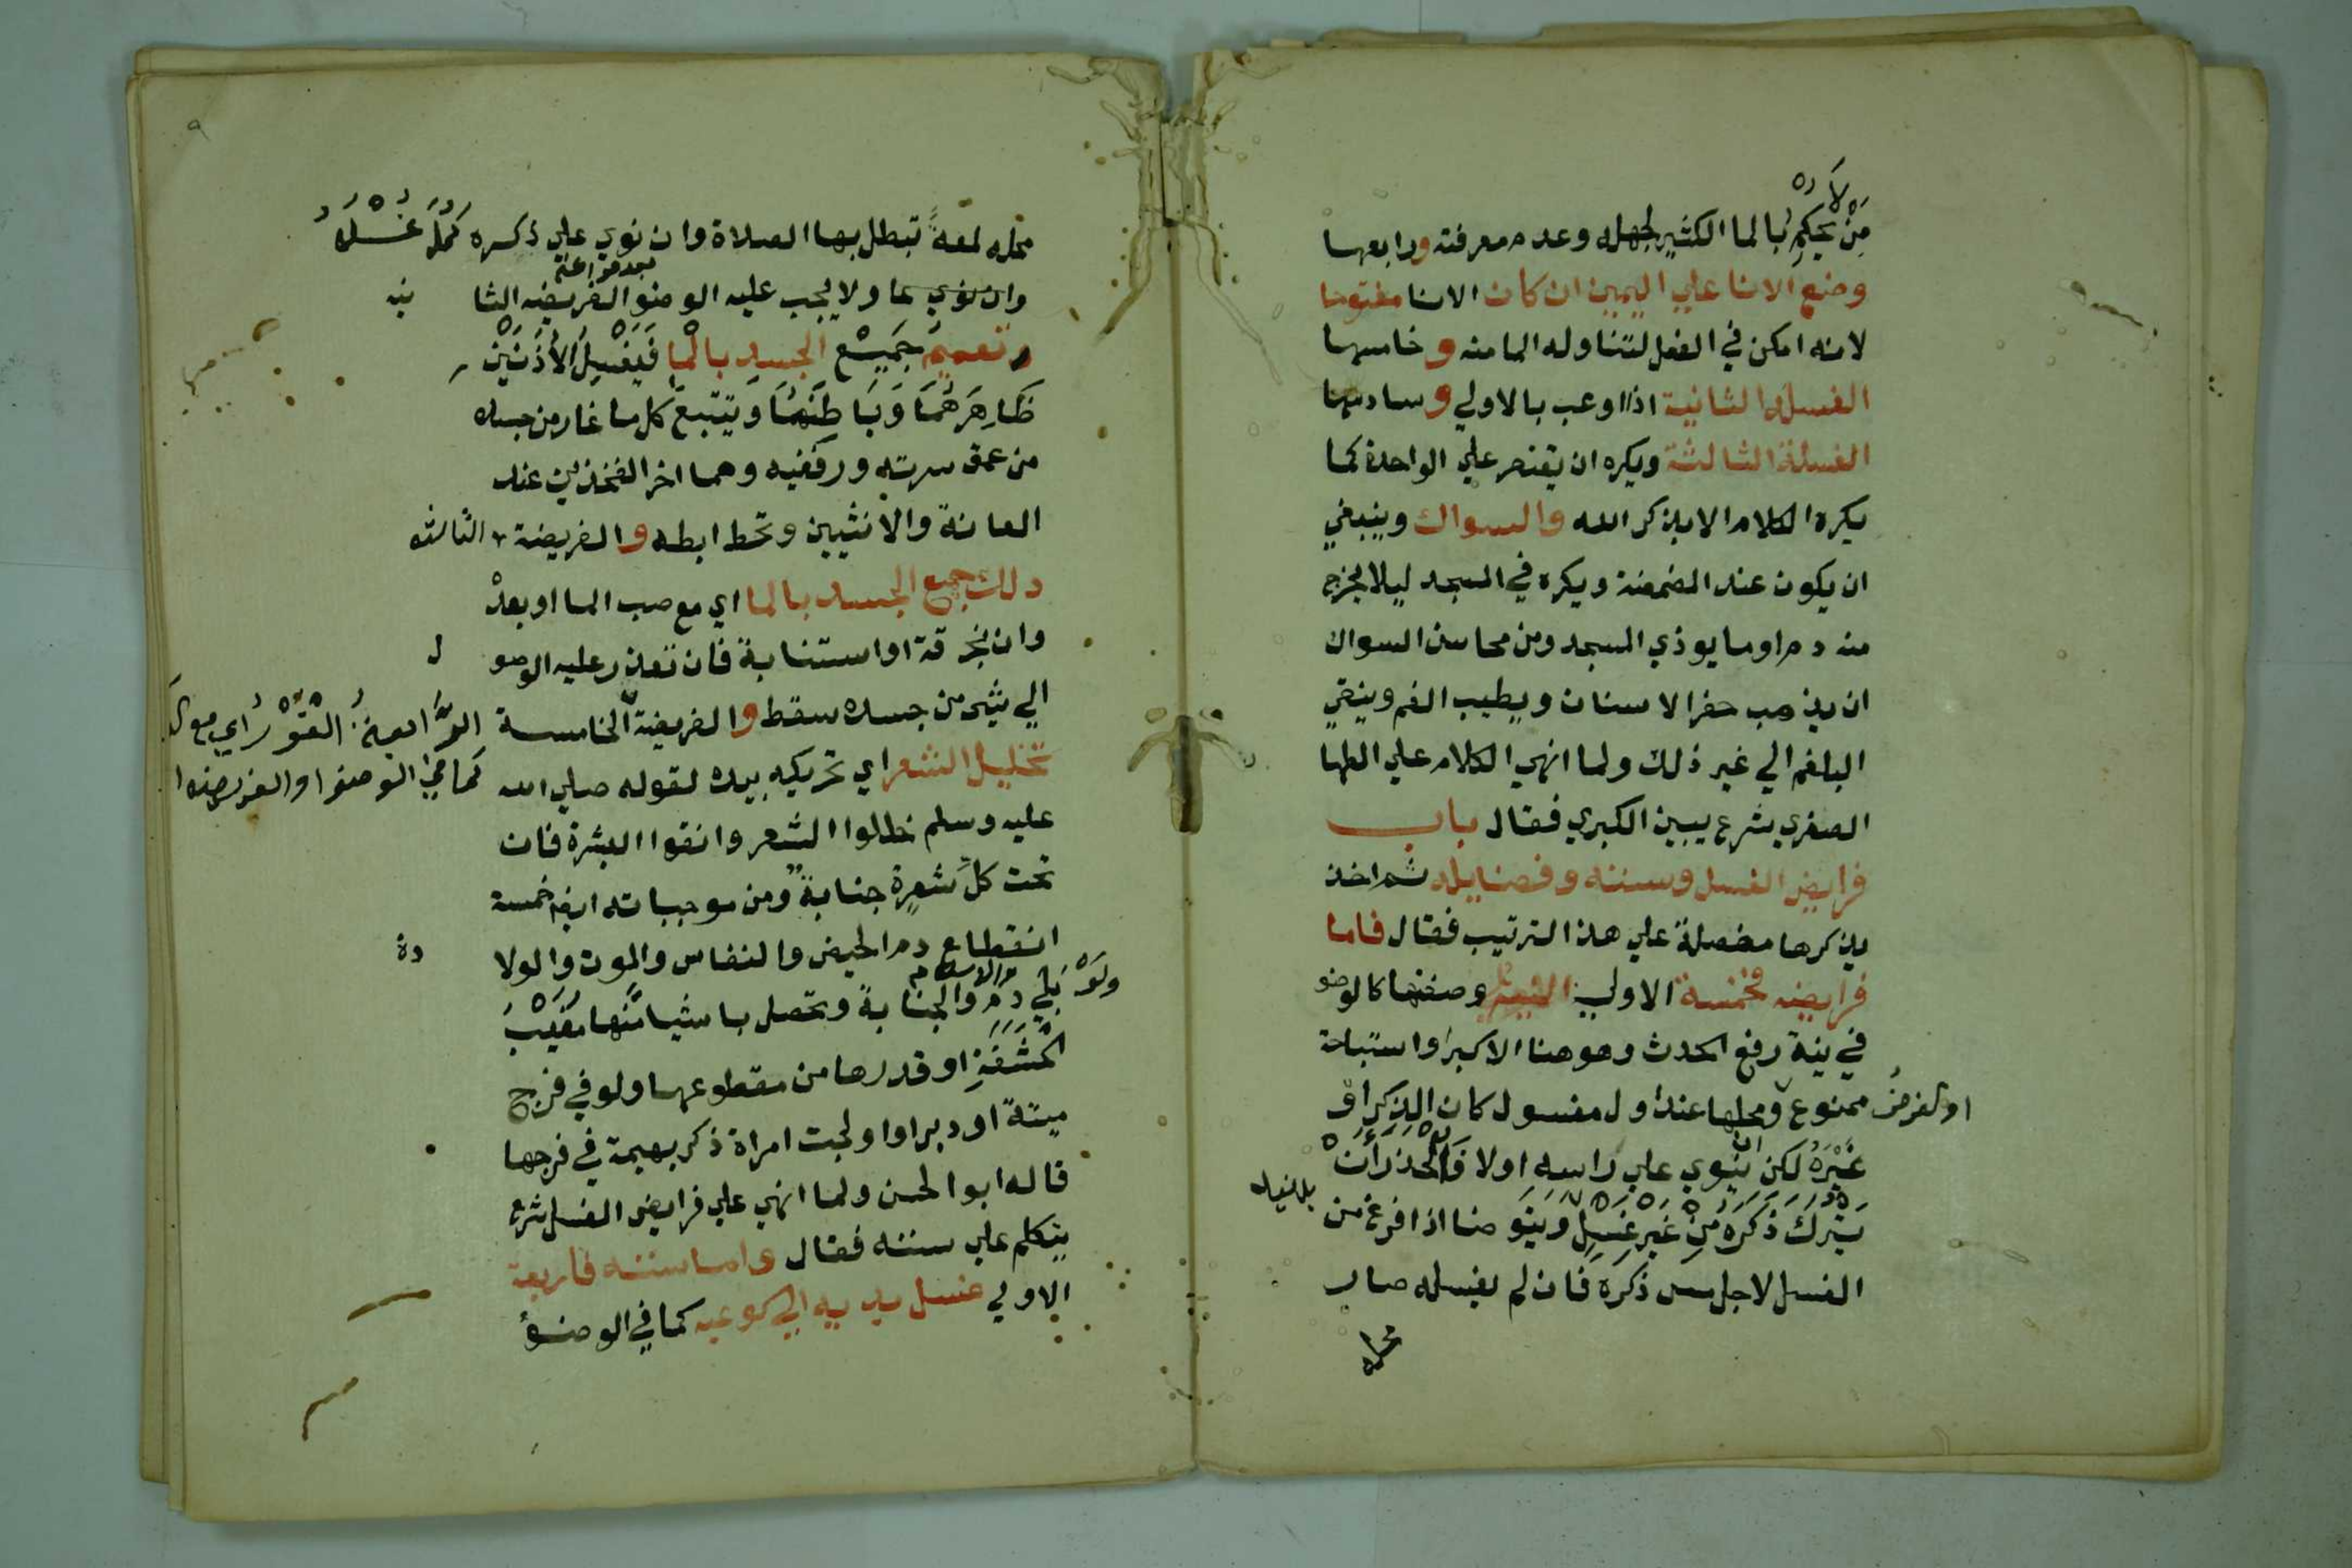 من لا يحكم بالما الكثير لجهله وعدم معرفته ورابعها
وضع الانا علي اليمين ان كان الانا مفتوحا
لانه امكن في الفعل لتناوله الما منه وخامسها
الغسله الثانية اذا اوعب بالاولي وسادسها
الغسلة الثالثة ويكره ان يقتصر علي الواحدة كما
يكره الكلام الا بذكر الله والسواك وينبغي
ان يكون عند المضمضة ويكره في المسجد ليلا يخرج
منه دم او ما يوذي المسجد ومن محاسن السواك
ان يذهب حفر الاسنان ويطيب الفم وينقي
البلغم الي غير ذلك ولما انهي الكلام علي الطها
الصغري شرع يبين الكبري فقال باب
فرايض الغسل وسننه وفضايله ثم اخذ
يذكرها مفصلة علي هذا الترتيب فقال فاما
فرايضه فخمسة الاولي النية وصفتها كالوضو
في نية رفع الحدث وهو هنا الاكبر او استباحة
ممنوع او الفرض ومحلها عند اول مغسول كان الذكر او
غيره لكن ان ينوي علي راسه اولا فالحذر ان
يترك ذكره من غير غسل ويتوضا اذا فرغ من
الغسل لاجل مس ذكره فان لم يغسله صار
محله
٩
محله لمعة تبطل بها الصلاة وان نوي علي ذكره كمل غسله
وان نوي عما ولا يجب عليه الوضو بعد فراغه الفريضه الثا نيه
تعميم جميع الجسد بالما فيغسل الاذنين
ظاهرهما وباطنهما ويتتبع كل ما غار من جسده
من عمق سرته ورفغيه وهما اخر الفخذين عند
العانة والانثيين وتحط ابطه والفريضة الثالثه
دلك جميع الجسد بالما اي مع صب الما او بعد
وان بخرقة او استنابة فان تعذر عليه الوصو ل
الي شي من جسده سقط والفريضة الخامسة
الرابعة الفور اي مع
تخليل الشعر اي تحريكه بيده لقوله صلي الله
كما في الوضوا والفريضة
عليه وسلم خللوا الشعر وانقوا البشرة فان
تحت كل شعرة جنابة ومن موجباته ايضا خمسة
انقطاع دم الحيض والنفاس والموت والولا دة
ولو بلي دم والاسلام والجنابة وتحصل باشيا منها مغيب
الحشفة او قدرها من مقطوعها ولو في فرج
ميتة او دبر او اولجت امراة ذكر بهيمة في فرجها
قاله ابو الحسن ولما انهي علي فرايض الغسل شرع
يتكلم علي سننه فقال واما سننه فاربعة
الاولي غسل يديه الي كوعيه كما في الوضوء